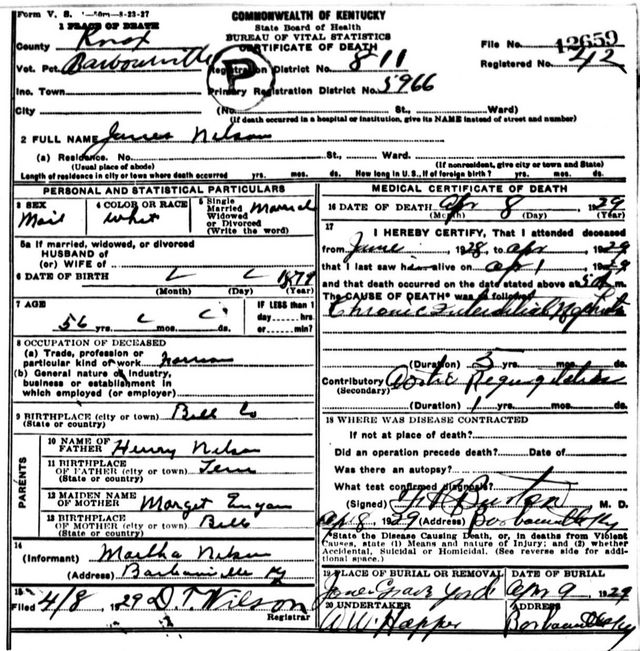 Form V. S. 1-50m-8-23-27
COMMONWEALTH OF KENTUCKY
State Board of Health
BUREAU OF VITAL STATISTICS
CERTIFICATE OF DEATH
1 PLACE OF DEATH
County Knox
File No. 12659
Vot. Pct. Barbourville
Registration District No. 811
Registered No. 42
P
Inc. Town
Primary Registration District No. 5966
City (No. St., Ward)
(If death occurred in a hospital or institution, give its NAME instead of street and number)
2 FULL NAME James Nelson
(a) Residence. No. St., Ward.
(Usual place of abode) (If nonresident, give city or town and State)
Length of residence in city or town where death occurred yrs. mos. ds. How long in U.S., if of foreign birth? yrs. mos. ds.
PERSONAL AND STATISTICAL PARTICULARS
3 SEX Mail
4 COLOR OR RACE Whit
5 Single Married Widowed or Divorced (Write the word) Married
5a If married, widowed, or divorced
HUSBAND of
(or) WIFE of
6 DATE OF BIRTH 1879
(Month) (Day) (Year)
7 AGE 56 yrs. mos. ds.
IF LESS than 1 day hrs. or min?
8 OCCUPATION OF DECEASED
(a) Trade, profession or particular kind of work
(b) General nature of industry, business or establishment in which employed (or employer)
9 BIRTHPLACE (city or town) Bell Co
(State or country)
PARENTS
10 NAME OF FATHER Henry Nelson
11 BIRTHPLACE OF FATHER (city or town) Tenn
(State or country)
12 MAIDEN NAME OF MOTHER Marget
13 BIRTHPLACE OF MOTHER (city or town) Bell
(State or country)
14
(Informant) Martha Nelson
(Address) Barbourville Ky
15
Filed 4/8 1929 D. T. Wilson
Registrar
MEDICAL CERTIFICATE OF DEATH
16 DATE OF DEATH Apr 8 1929
(Month) (Day) (Year)
17
I HEREBY CERTIFY, That I attended deceased
from June 1928 to Apr 1929
that I last saw him alive on Apr 1 1929
and that death occurred on the date stated above at m.
The CAUSE OF DEATH* was as follows:
Chronic Interstitial Nephritis
(Duration) 5 yrs. mos. ds.
Contributory Aortic Regurgitation
(Secondary)
(Duration) 1 yrs. mos. ds.
18 WHERE WAS DISEASE CONTRACTED
If not at place of death?
Did an operation precede death? Date of
Was there an autopsy?
What test confirmed diagnosis?
(Signed) Burton M. D.
Apr 8 1929 (Address) Barbourville Ky
*State the Disease Causing Death, or, in deaths from Violent
Causes, state (1) Means and nature of Injury; and (2) whether
Accidental, Suicidal or Homicidal. (See reverse side for addi-
tional space.)
19 PLACE OF BURIAL OR REMOVAL Jones Grave Yard
DATE OF BURIAL Apr 9 1929
20 UNDERTAKER W. W. Hopper
ADDRESS Barbourville Ky